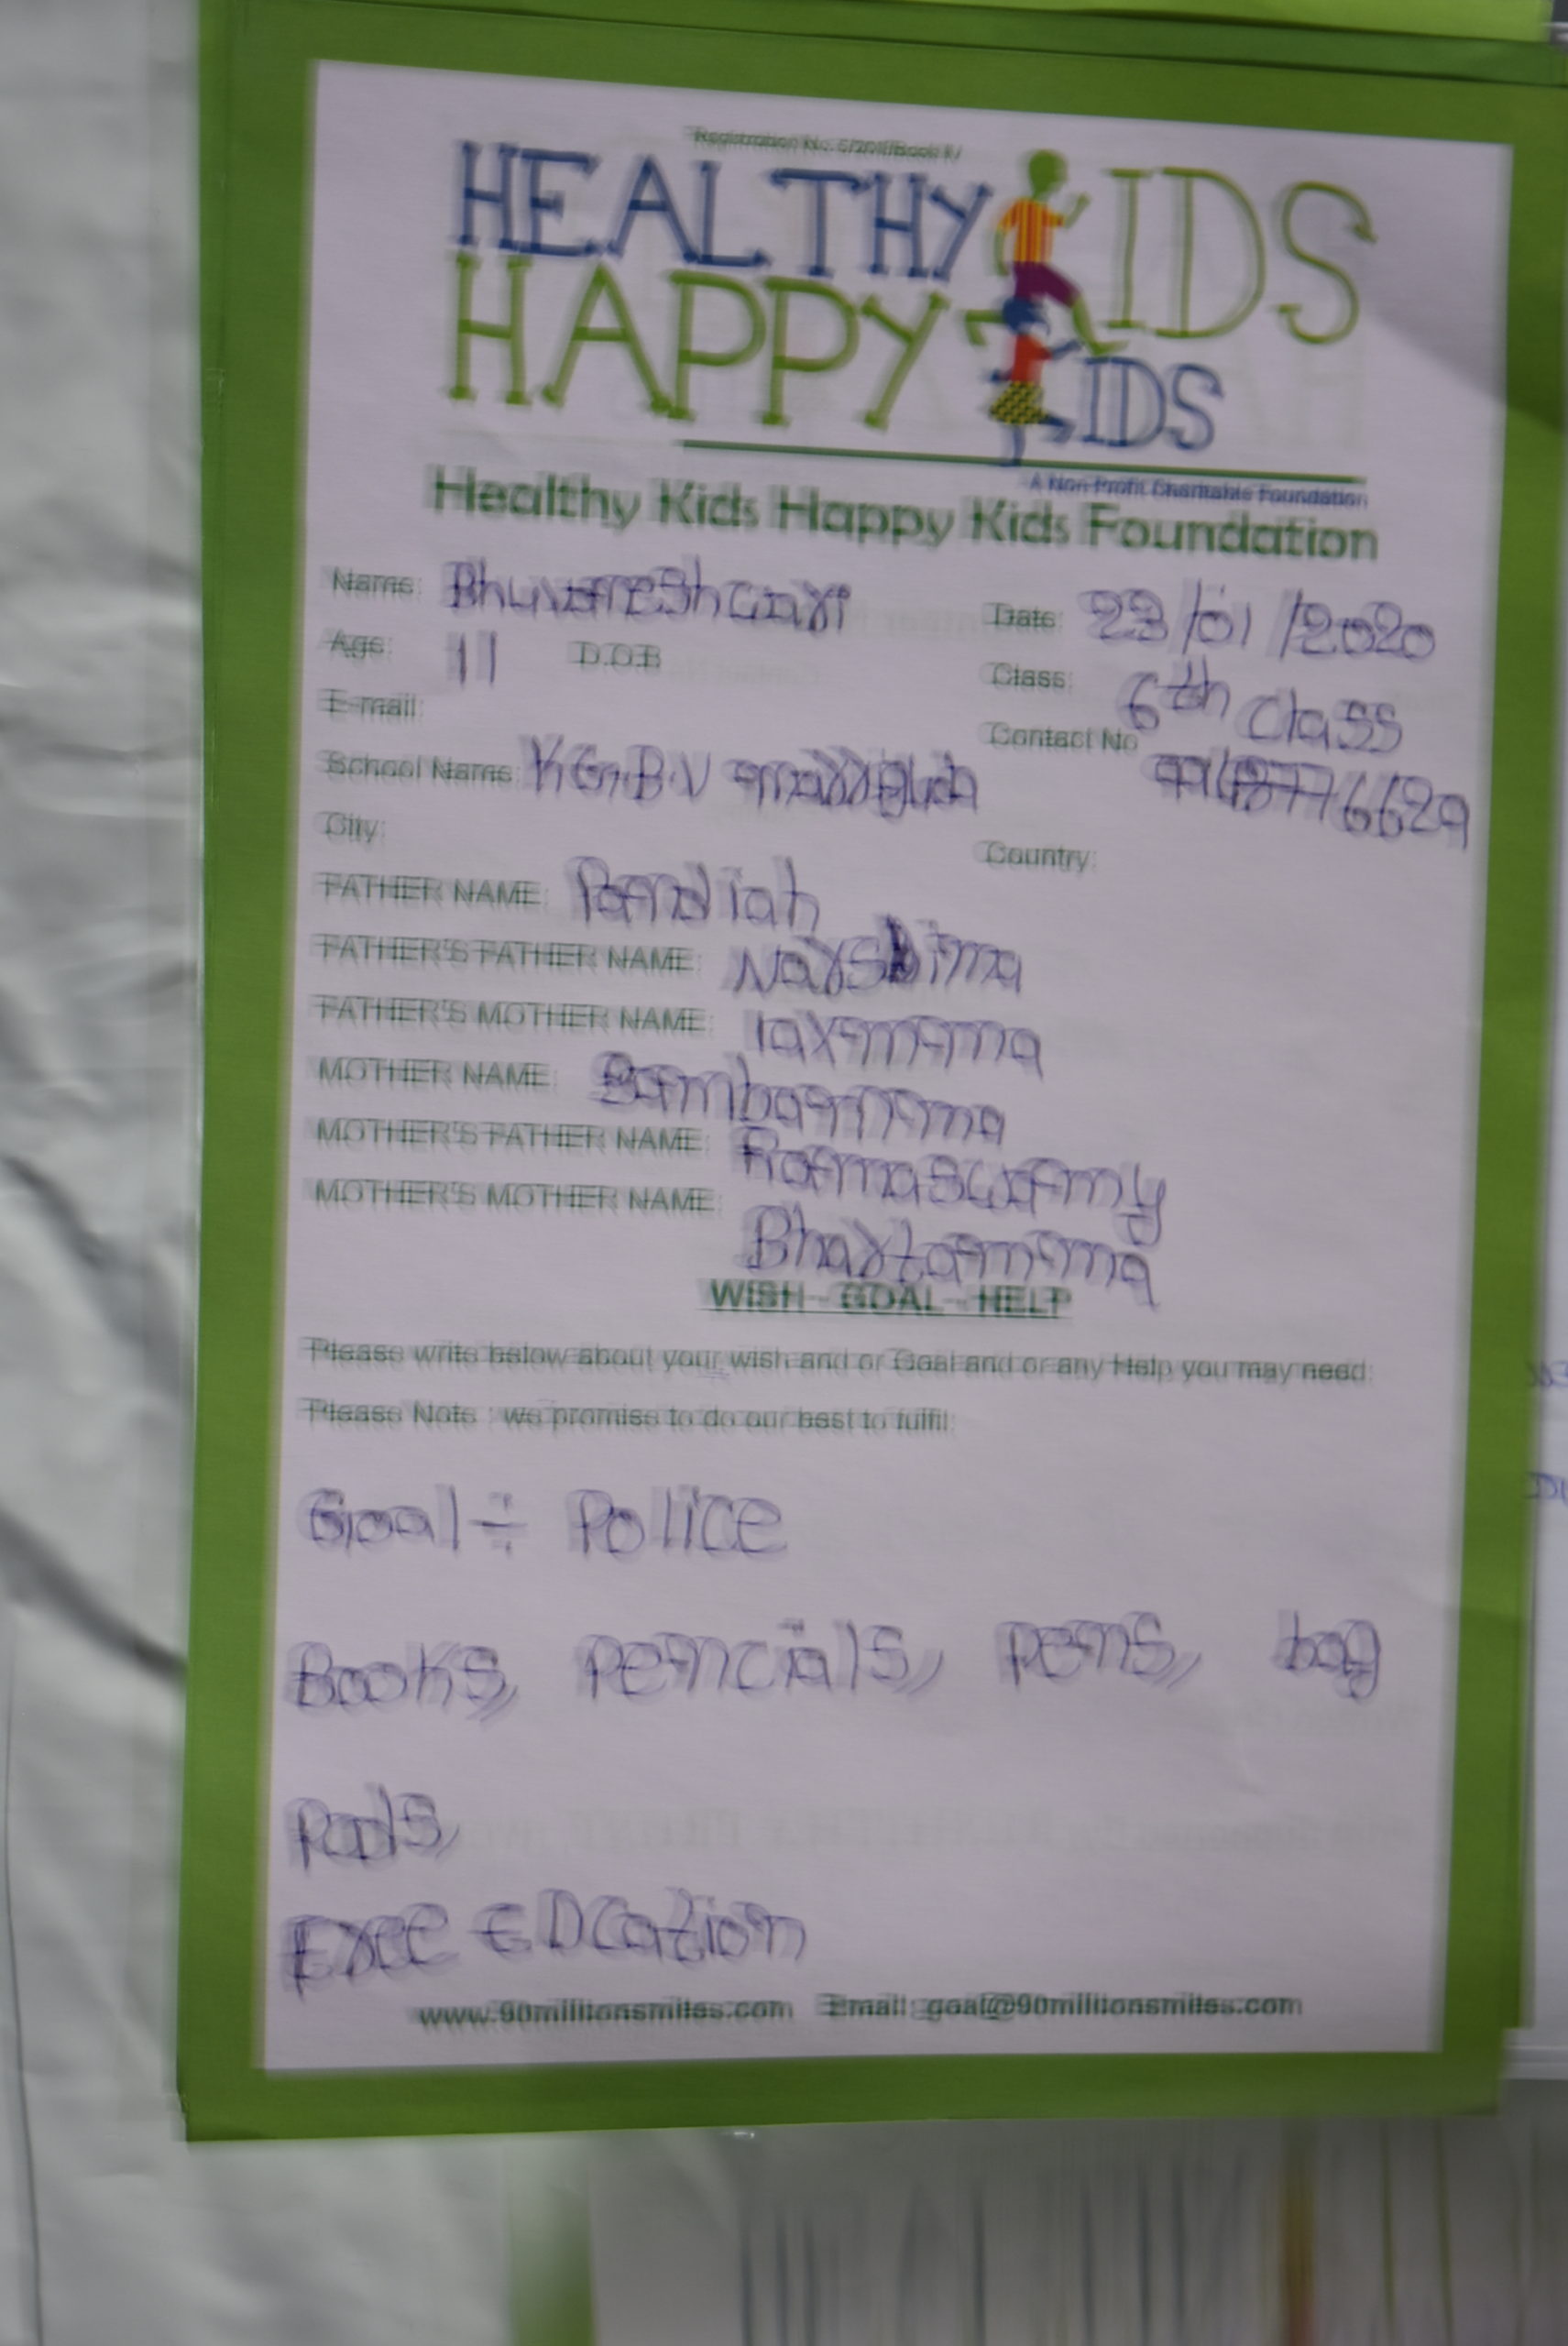 HEALTHY KIDS
HAPPY KIDS
A Non Profit Charitable Foundation
Healthy Kids Happy Kids Foundation
Name: Bhuvaneshwari Date: 23/01/2020
Age: 11 D.O.B Class: 6th Class
E-mail: Contact No
School Name: K.G.B.V
City: Country:
FATHER NAME: Pandiah
FATHER'S FATHER NAME: Narsima
FATHER'S MOTHER NAME: laxmma
MOTHER NAME:
MOTHER'S FATHER NAME: Ramaswamy
MOTHER'S MOTHER NAME:
WISH - GOAL - HELP
Please write below about your wish and or Goal and or any Help you may need:
Please Note : we promise to do our best to fulfil:
Goal ÷ Police
Books, pencials, pens, bag
Pads,
EDCation
www.90millionsmiles.com Email: goal@90millionsmiles.com